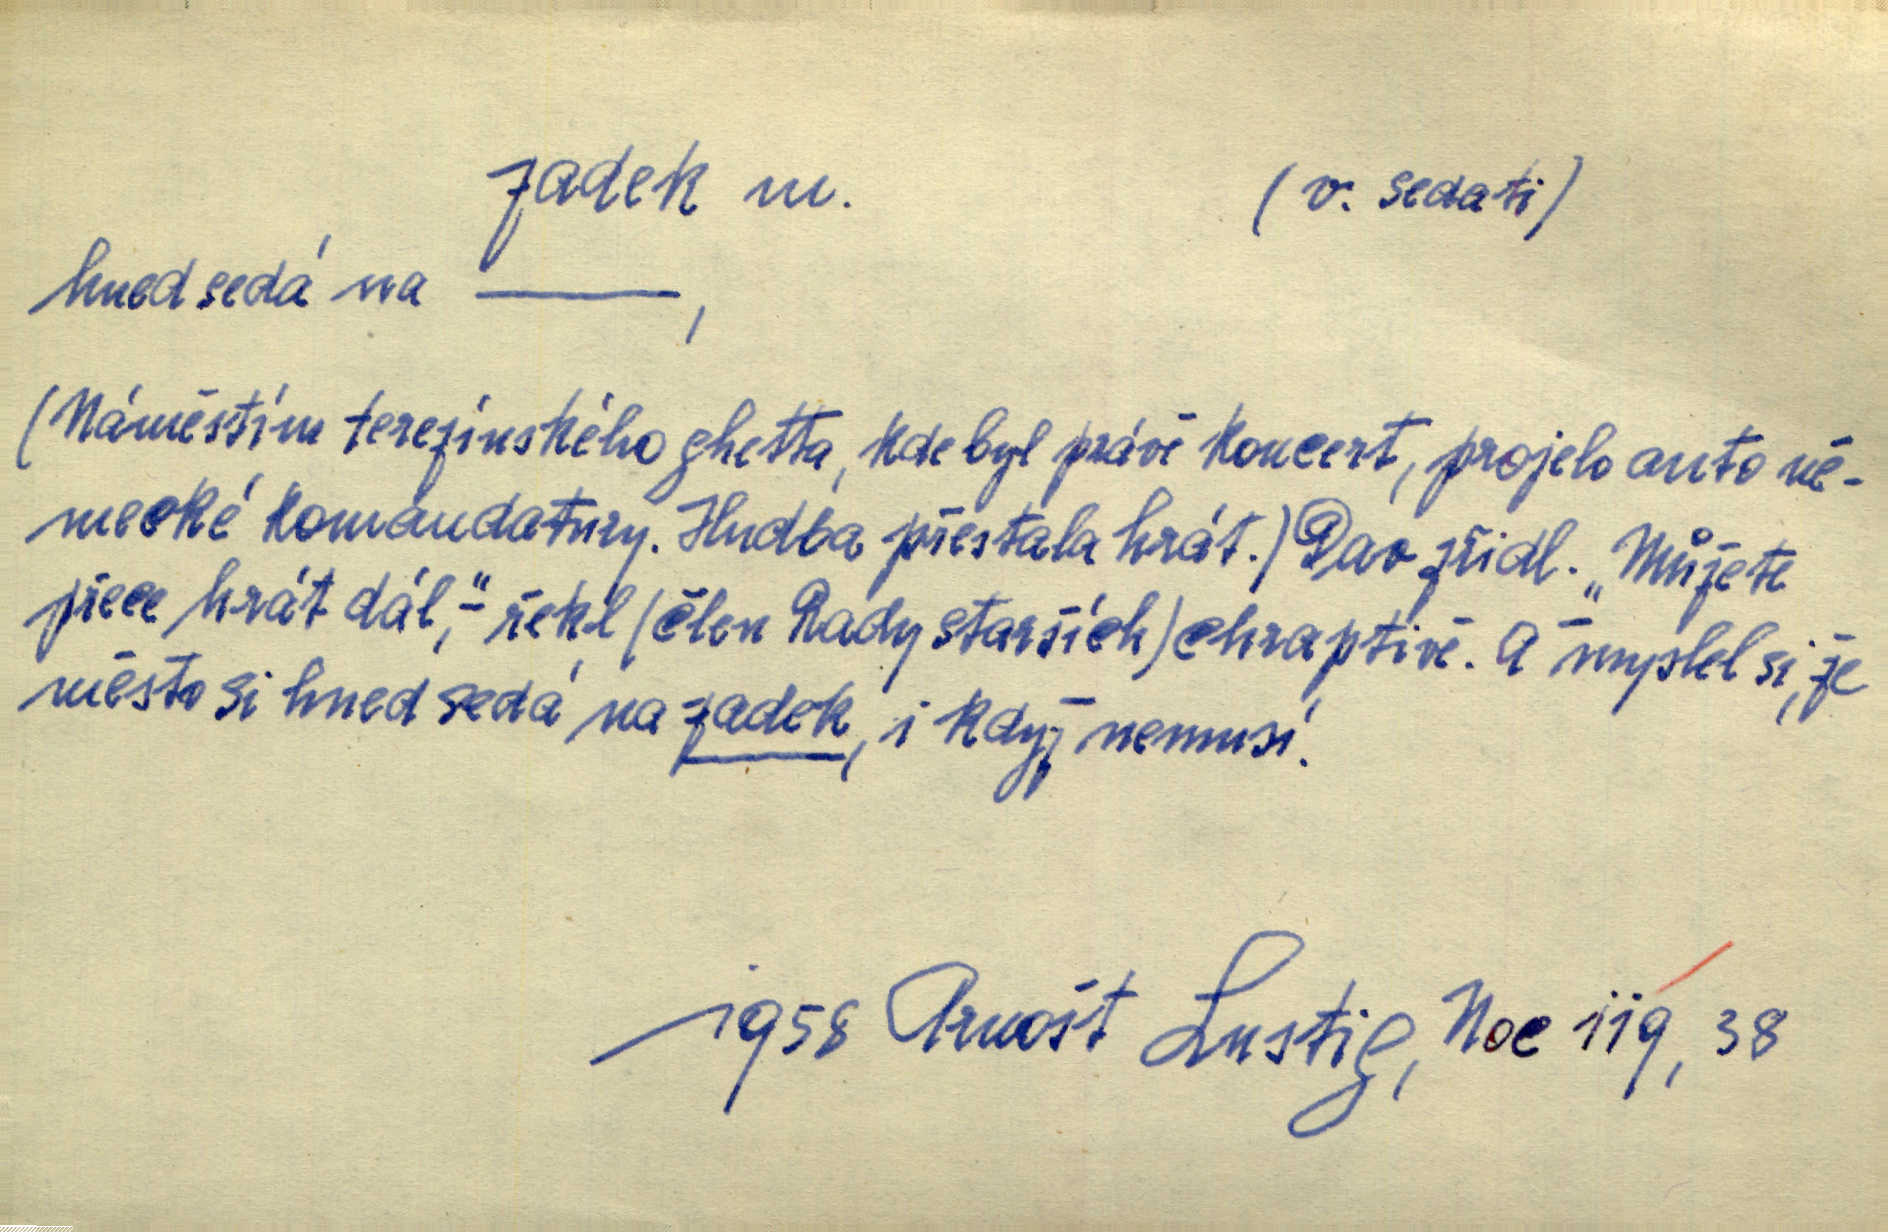 zadek m. (v. sedati)
hned sedá na ———,
(Náměstím terezínského ghetta, kde byl právě koncert, projelo auto ně-
mecké komandatury. Hudba přestala hrát.) Dav zřídl. „Můžete
přece hrát dál,“ - řekl (člen Rady starších) chraptivě. A myslel si, že
město si hned sedá na zadek, i když nemusí.
1958 Arnošt Lustig, Noc 119, 38